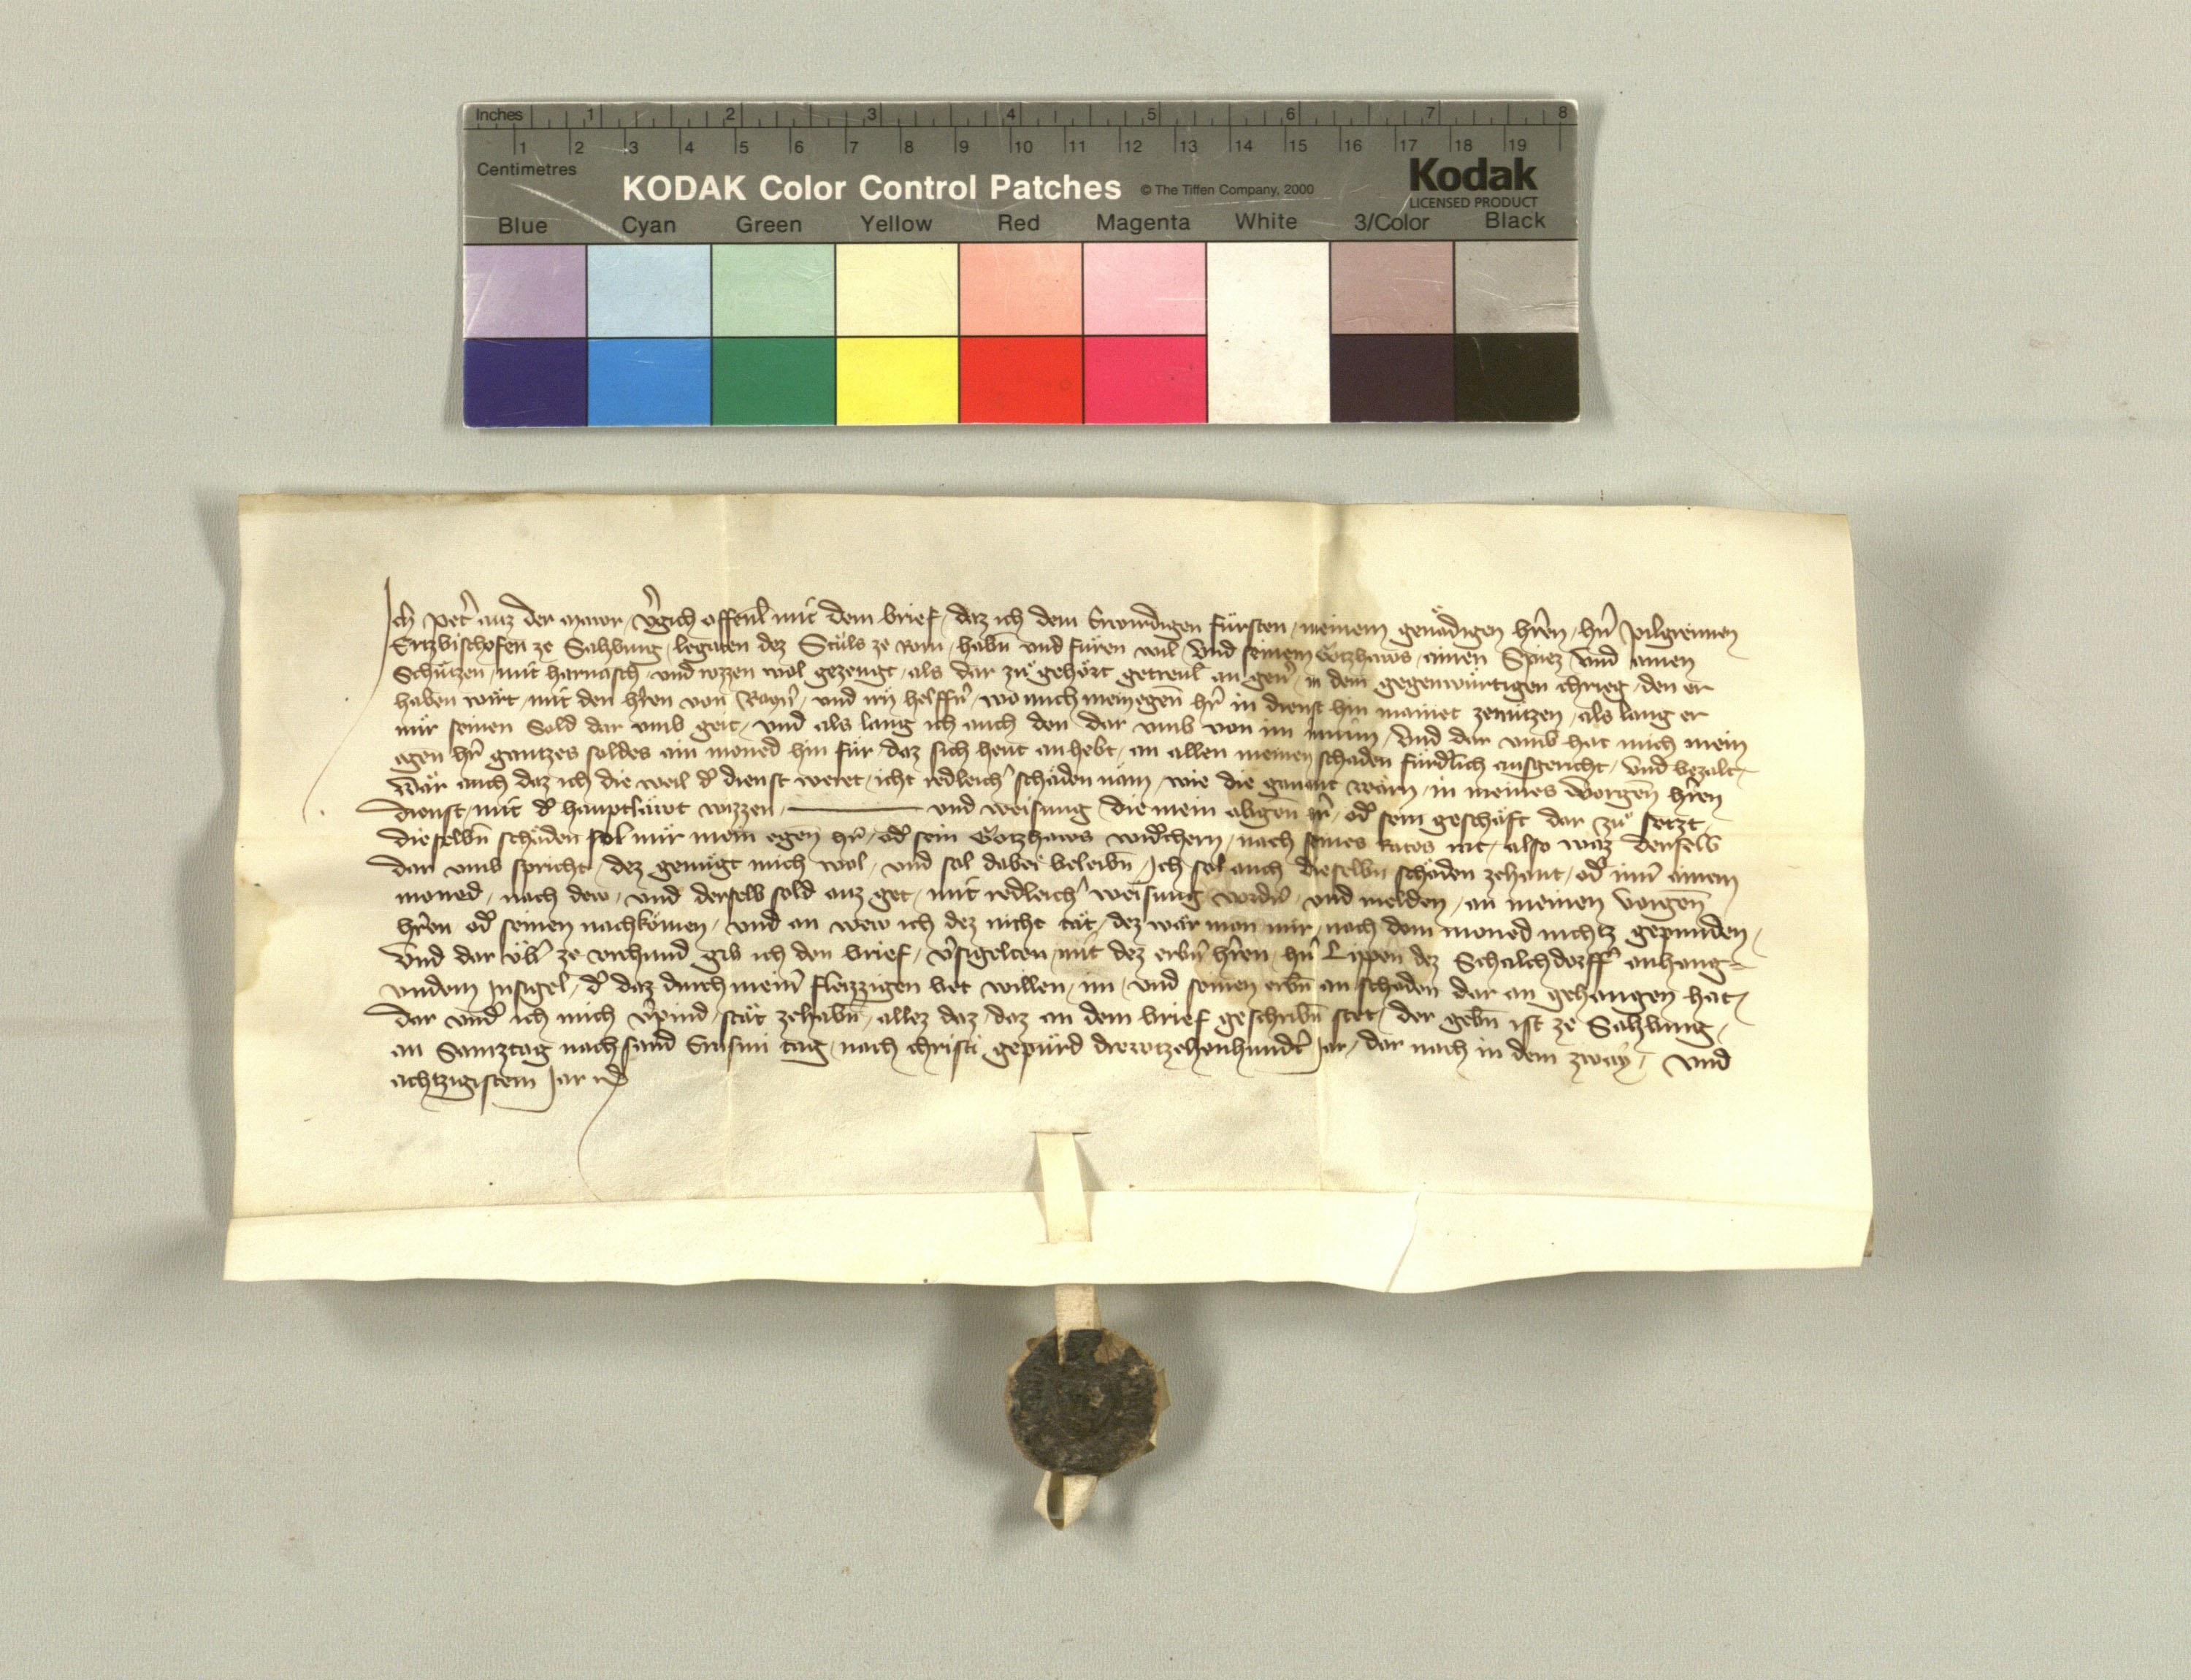 Inches 1 2 3 4 5 6 7 8
1 2 3 4 5 6 7 8 9 10 11 12 13 14 15 16 17 18 19
Centimetres
KODAK Color Control Patches © The Tiffen Company, 2000 Kodak
LICENSED PRODUCT
Blue Cyan Green Yellow Red Magenta White 3/Color Black
Ich pet̾ auz der mawr v̾gich offenl̄ mit dem brief daz ich dem Erwirdigen fürsten meinem genädigen hr̄en hn̄ pilgreimen
Ertzbischofen ze Salzburg legaten dez Stuls ze Rom habn̄ und füren wil und seinem Gotzhaws ainen Spiez und ainen
Schützen mit harnasch und rozzen wol gezeugt als dar zu gehört getreul̄ an gen̄ in dem gegenwürtigen chrieg den er
haben wirt mit den hr̄en von Bayn̄ und irn helffn̄ wo mich mein egen̄ hr̄ in dienst hin mainet zenützen als lang er
mir seinen Sold dar umb geit und als lang ich auch den dar umb von im nim und dar umb hat mich mein
egen hr̄ gantzes soldes ain moned hin für daz sich heut anhebt an allen meinen schaden fürdl̄ich ausgericht und bezalt
wär auch daz ich die weil d̾ dienst weret icht redleich̾ schäden näm wie die genant wärn in meines vorgen̄ hr̄en
dienst mit d̾ hauptläwt wizzen und weisung die mein obgen̄ hr̄ od̾ sein geschäft dar zu setzt
dieselbn̄ schäden sol mir mein egen̄ hr̄ od̾ sein Gotzhaws widchern nach seines Ratos rat also waz derselb
dar umb spricht dez genügt mich wol und sol dabei beleibn̄ Ich sol auch dieselbn̄ schäden zehant od̾ inn̄ ainem
moned nach dew und derselb sold auz get mit redleich̾ weisung vordn̄ und melden an meinen vorgen̄
hr̄en od̾ seinen nachkömen und an wew ich dez nicht tät dez wär man mir nach dem moned nichtz gepunden
und dar üb̾ ze urchund gib ich den brief v̾sigelten mit dez erbn̄ hr̄en hn̄ Lippen dez Schalchdorff̾ anhang=
undem Insigel d̾ daz durch mein̄ fleizzigen bet willen im und seinen erbn̄ an schaden dar an gehangen hat
dar und̾ ich mich v̾pind stät zehabn̄ allez daz daz an dem brief geschribn̄ stet der gebn̄ ist ze Salzburg
an Samztag nach sand Erasm tag nach christi gepürd drewtzehenhundt̾ Jar dar nach in dem zway und
achtzigistem Jar